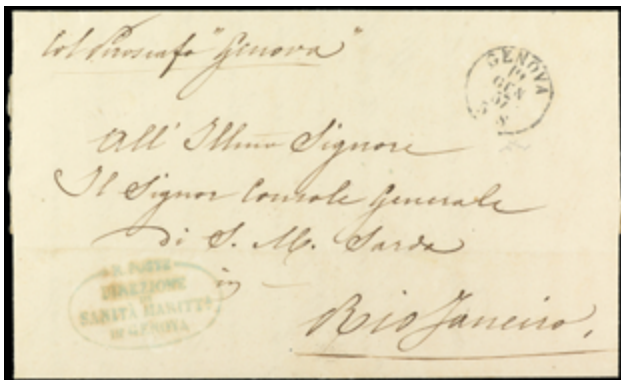 Col Piroscafo "Genova"
GENOVA
19
GEN
57
All' Illmo Signore
Il Signor Console Generale
di S. M. Sarda
in
Rio Janeiro,
DIREZIONE
DI
SANITÀ MARITTA
IN GENOVA